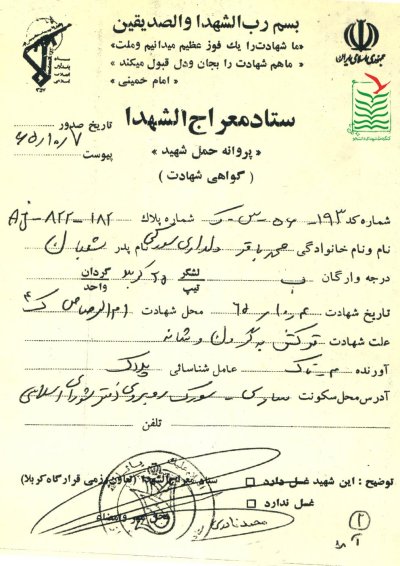 بسم رب الشهدا والصدیقین
«ما شهادت را یك فوز عظیم میدانیم وملت»
«ماهم شهادت را بجان ودل قبول میکند»
«امام خمینی»
جمهوری اسلامی ایران
ستاد معراج الشهدا
تاریخ صدور ۶۵/۱۰/۷
پیوست
«پروانه حمل شهید»
(گواهی شهادت)
شماره کد ۱۹۳-۵۶-س-ک شماره پلاك AJ-۸۲۲-۱۸۲
نام ونام خانوادگی محمد باقر دلداری سورکی نام پدر شعبان
درجه وارگان ب لشگر تیپ ۲۵ کربلا گردان واحد
تاریخ شهادت ۶۵/۱۰/۴ محل شهادت ام الرصاص ک۴
علت شهادت ترکش به گردن و شانه
آورنده عامل شناسائی پلاک
آدرس محل سکونت ساری - سورک روبروی دفتر شورای اسلامی
تلفن
توضیح : این شهید غسل دارد
ستاد معراج الشهدا (تعاون رزمی قرارگاه کربلا)
غسل ندارد
محل مهر وامضاء
۲